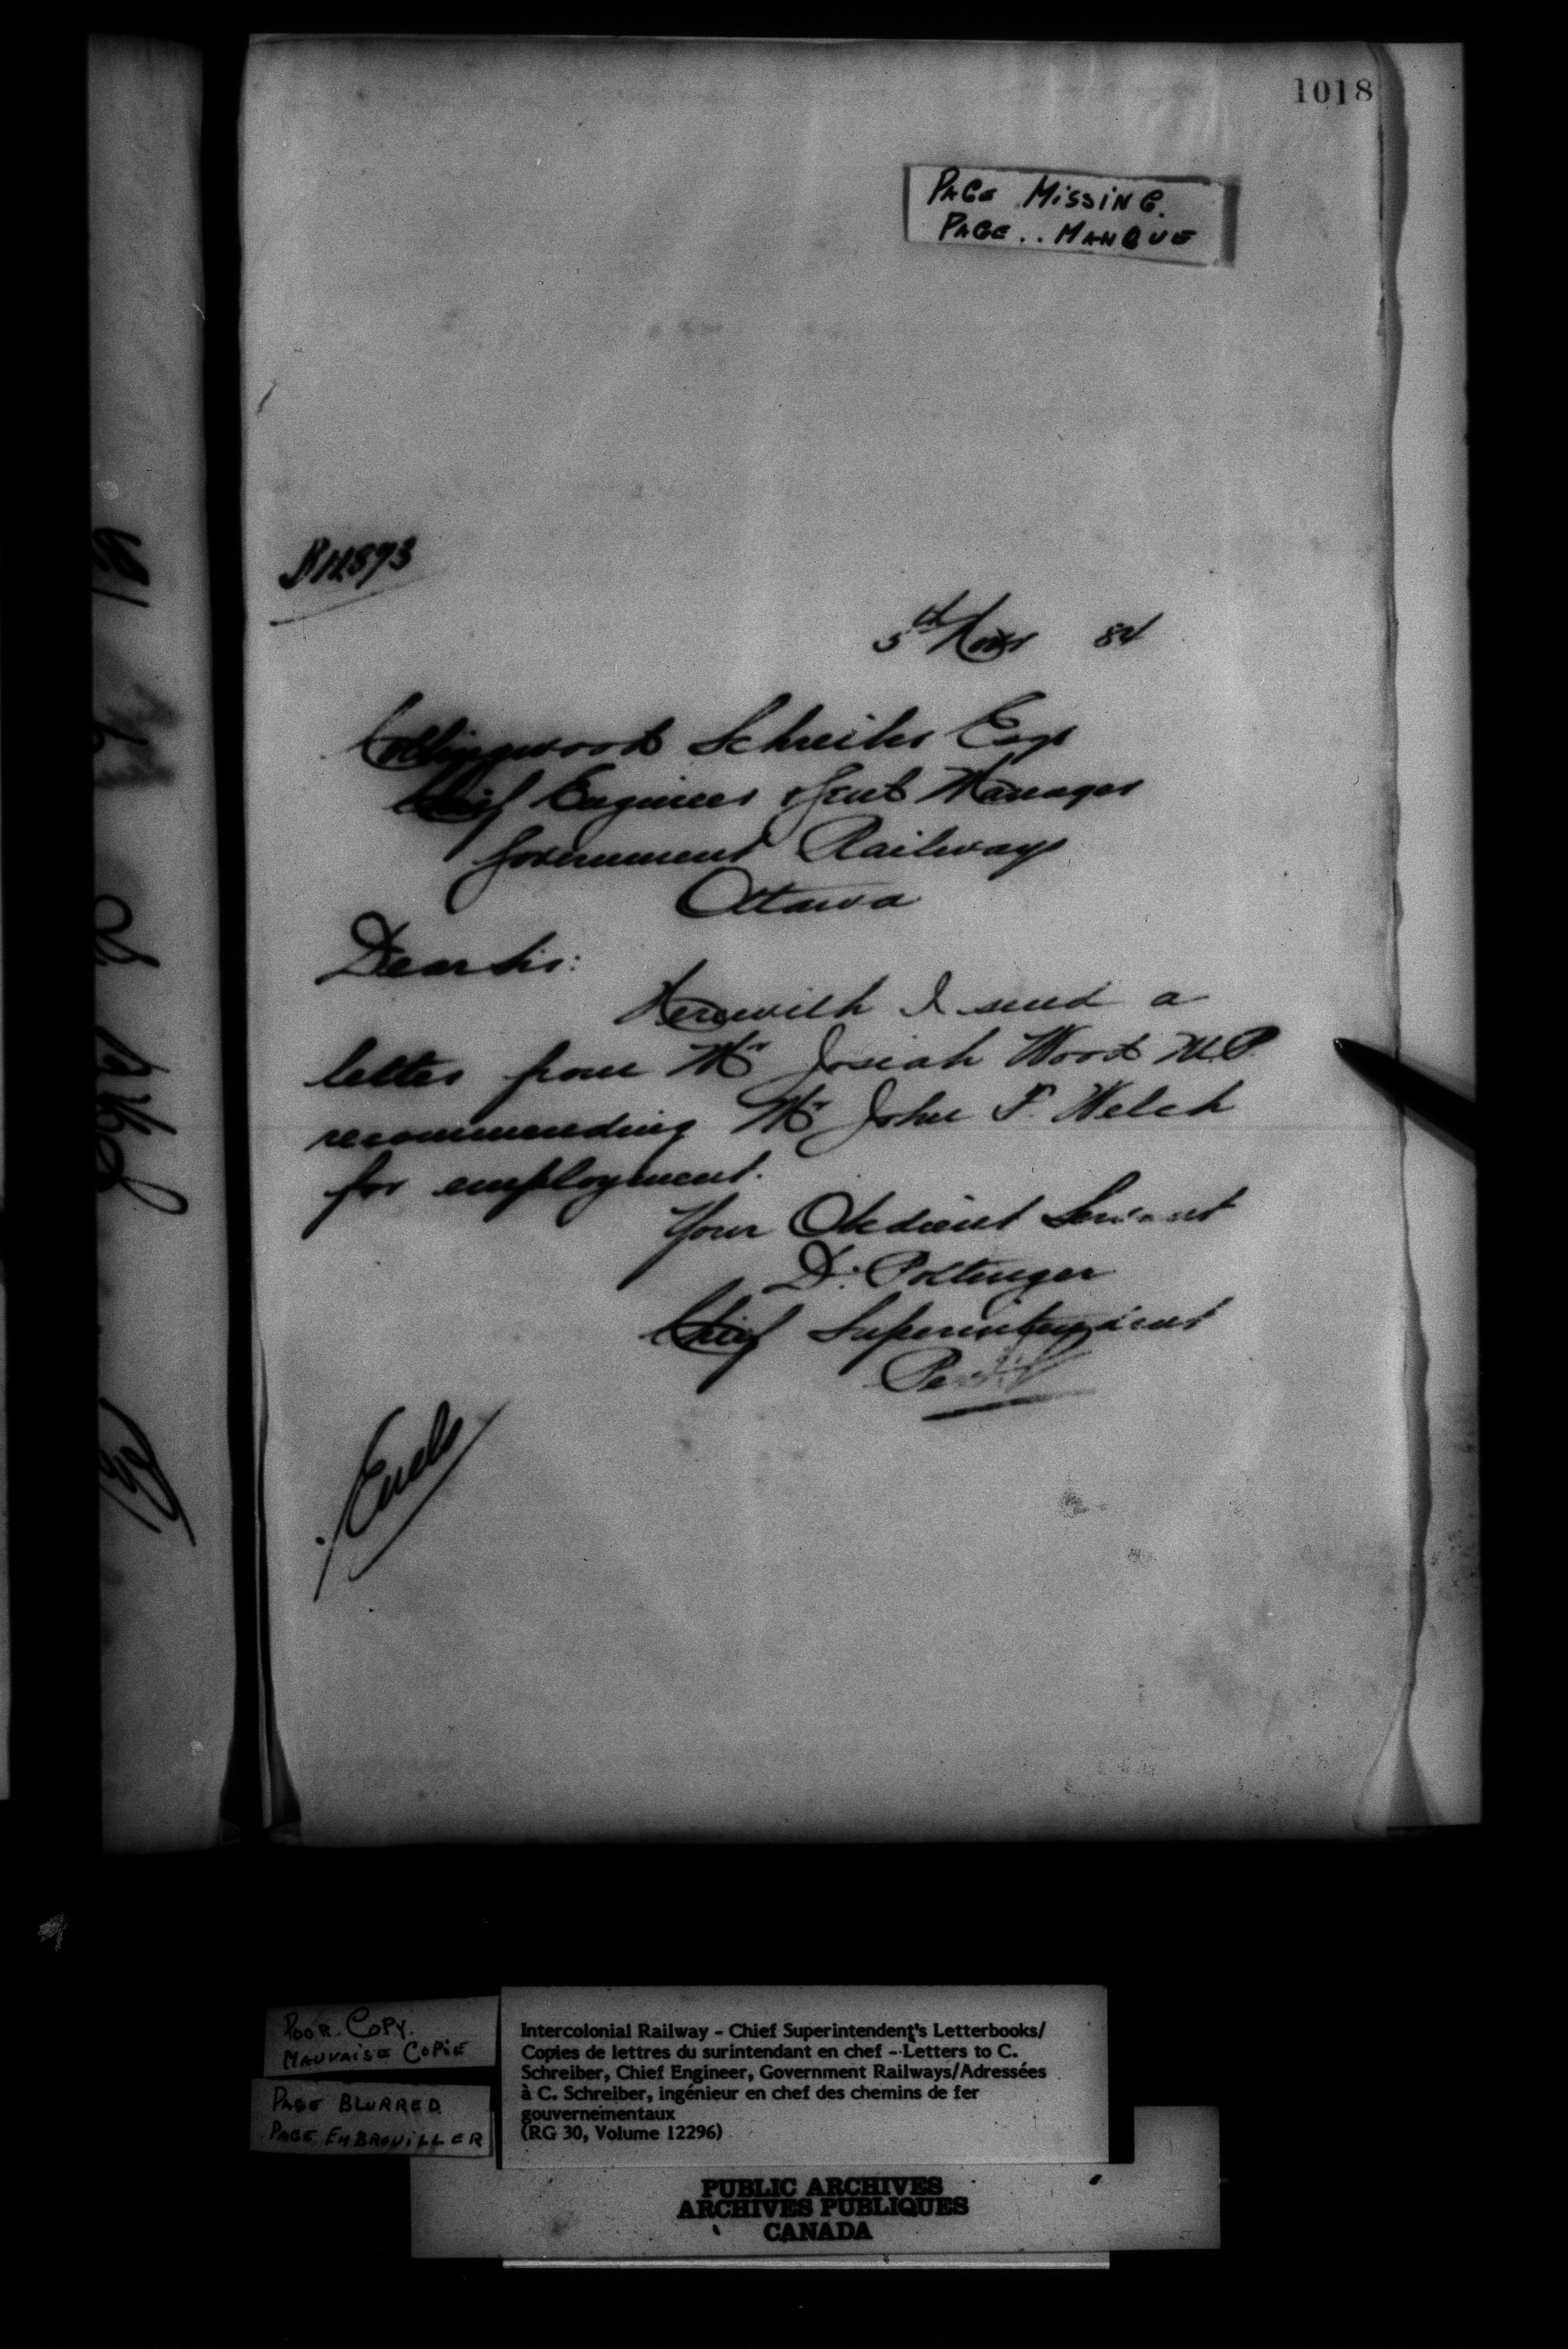 1018
PAGE MISSING.
PAGE.. MANQUE
5th Novr 84
Collingwood Schreiber Esqr
Chief Engineer & Genl Manager
Government Railways
Ottawa
Dear Sir:
Herewith I send a
letter from Mr Josiah Wood M.P.
recommending Mr John F. Welch
for employment.
Your Obedient Servant
D. Pottinger
Chief Superintendent
Per
Encls
POOR COPY.
MAUVAISE COPIE
PAGE BLURRED
PAGE EMBROUILLER
Intercolonial Railway - Chief Superintendent's Letterbooks/
Copies de lettres du surintendant en chef - Letters to C.
Schreiber, Chief Engineer, Government Railways/Adressées
à C. Schreiber, ingénieur en chef des chemins de fer
gouvernementaux
(RG 30, Volume 12296)
PUBLIC ARCHIVES
ARCHIVES PUBLIQUES
CANADA